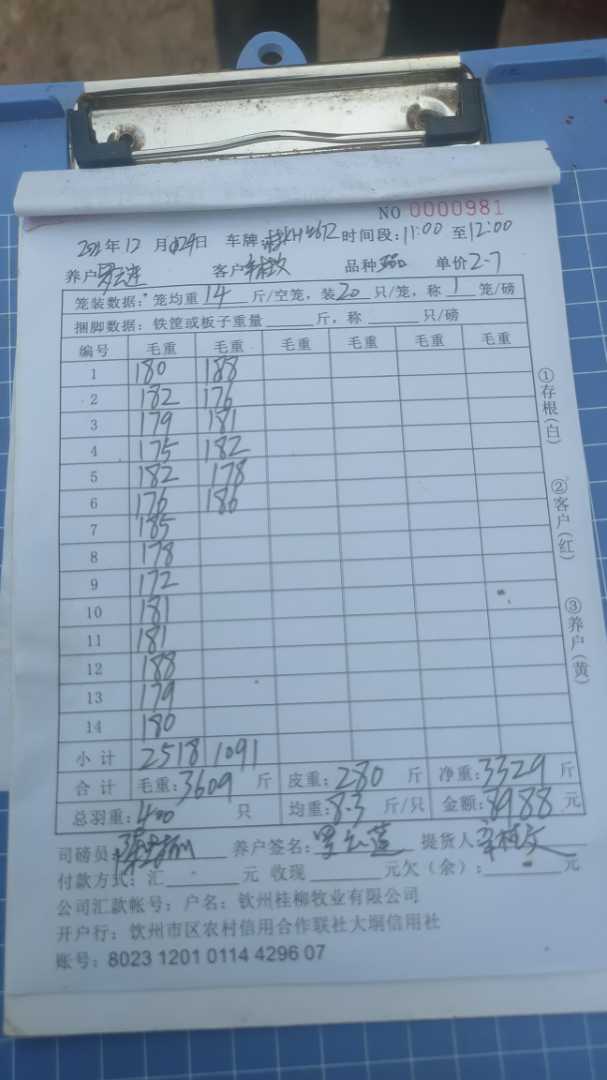 NO 0000981
年12月29日 车牌 时间段:11:00 至12:00
养户 客户 品种 单价2-7
笼装数据: 笼均重 14 斤/空笼, 装20 只/笼, 称 1 笼/磅
捆脚数据: 铁筐或板子重量 斤, 称 只/磅
编号 毛重 毛重 毛重 毛重 毛重 毛重
1 180 188
2 182 176
3 179 181
4 175 182
5 182 178
6 176 186
7 185
8 178
9 172
10 181
11 181
12 188
13 179
14 180
小计 2518 1091
合计 毛重:3609 斤 皮重:280 斤 净重:3329 斤
总羽重:400 只 均重:8.3 斤/只 金额:8988 元
司磅员: 养户签名: 提货人
付款方式: 汇 元 收现 元欠(余): 元
公司汇款帐号: 户名: 钦州桂柳牧业有限公司
开户行: 钦州市区农村信用合作联社大垌信用社
账号: 8023 1201 0114 4296 07
①存根(白)
②客户(红)
③养户(黄)